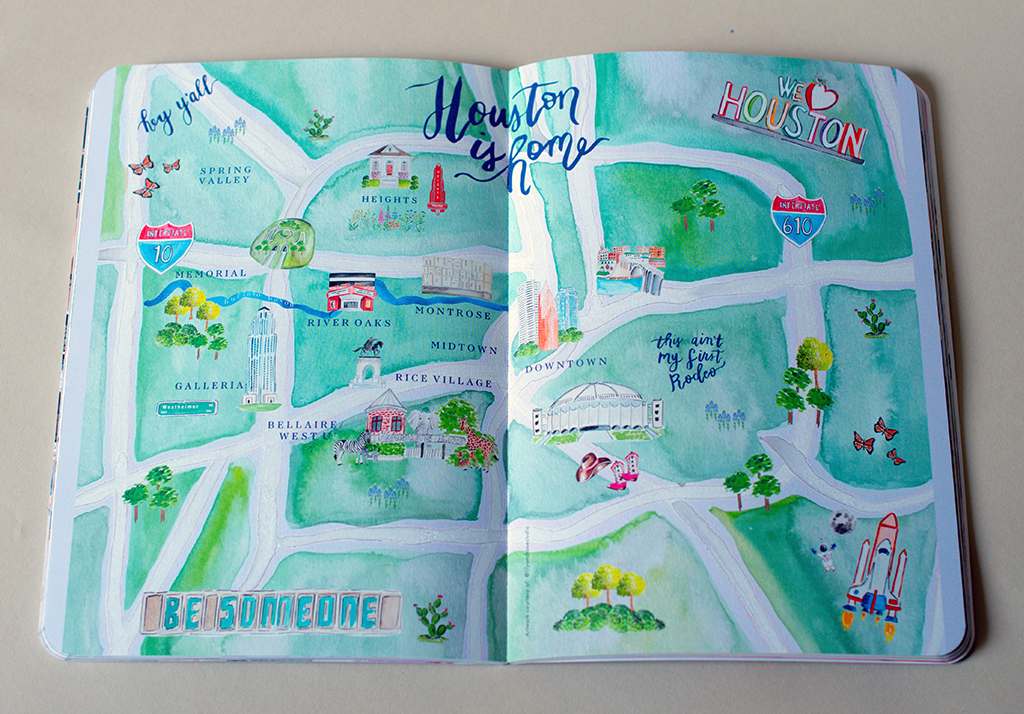 hey y'all
Houston
is home
WE
HOUSTON
SPRING
VALLEY
HEIGHTS
INTERSTATE
10
INTERSTATE
610
MEMORIAL
RIVER OAKS
MONTROSE
MIDTOWN
GALLERIA
RICE VILLAGE
Westheimer
BELLAIRE
WEST U
DOWNTOWN
this ain't
my first
Rodeo
BE SOMEONE